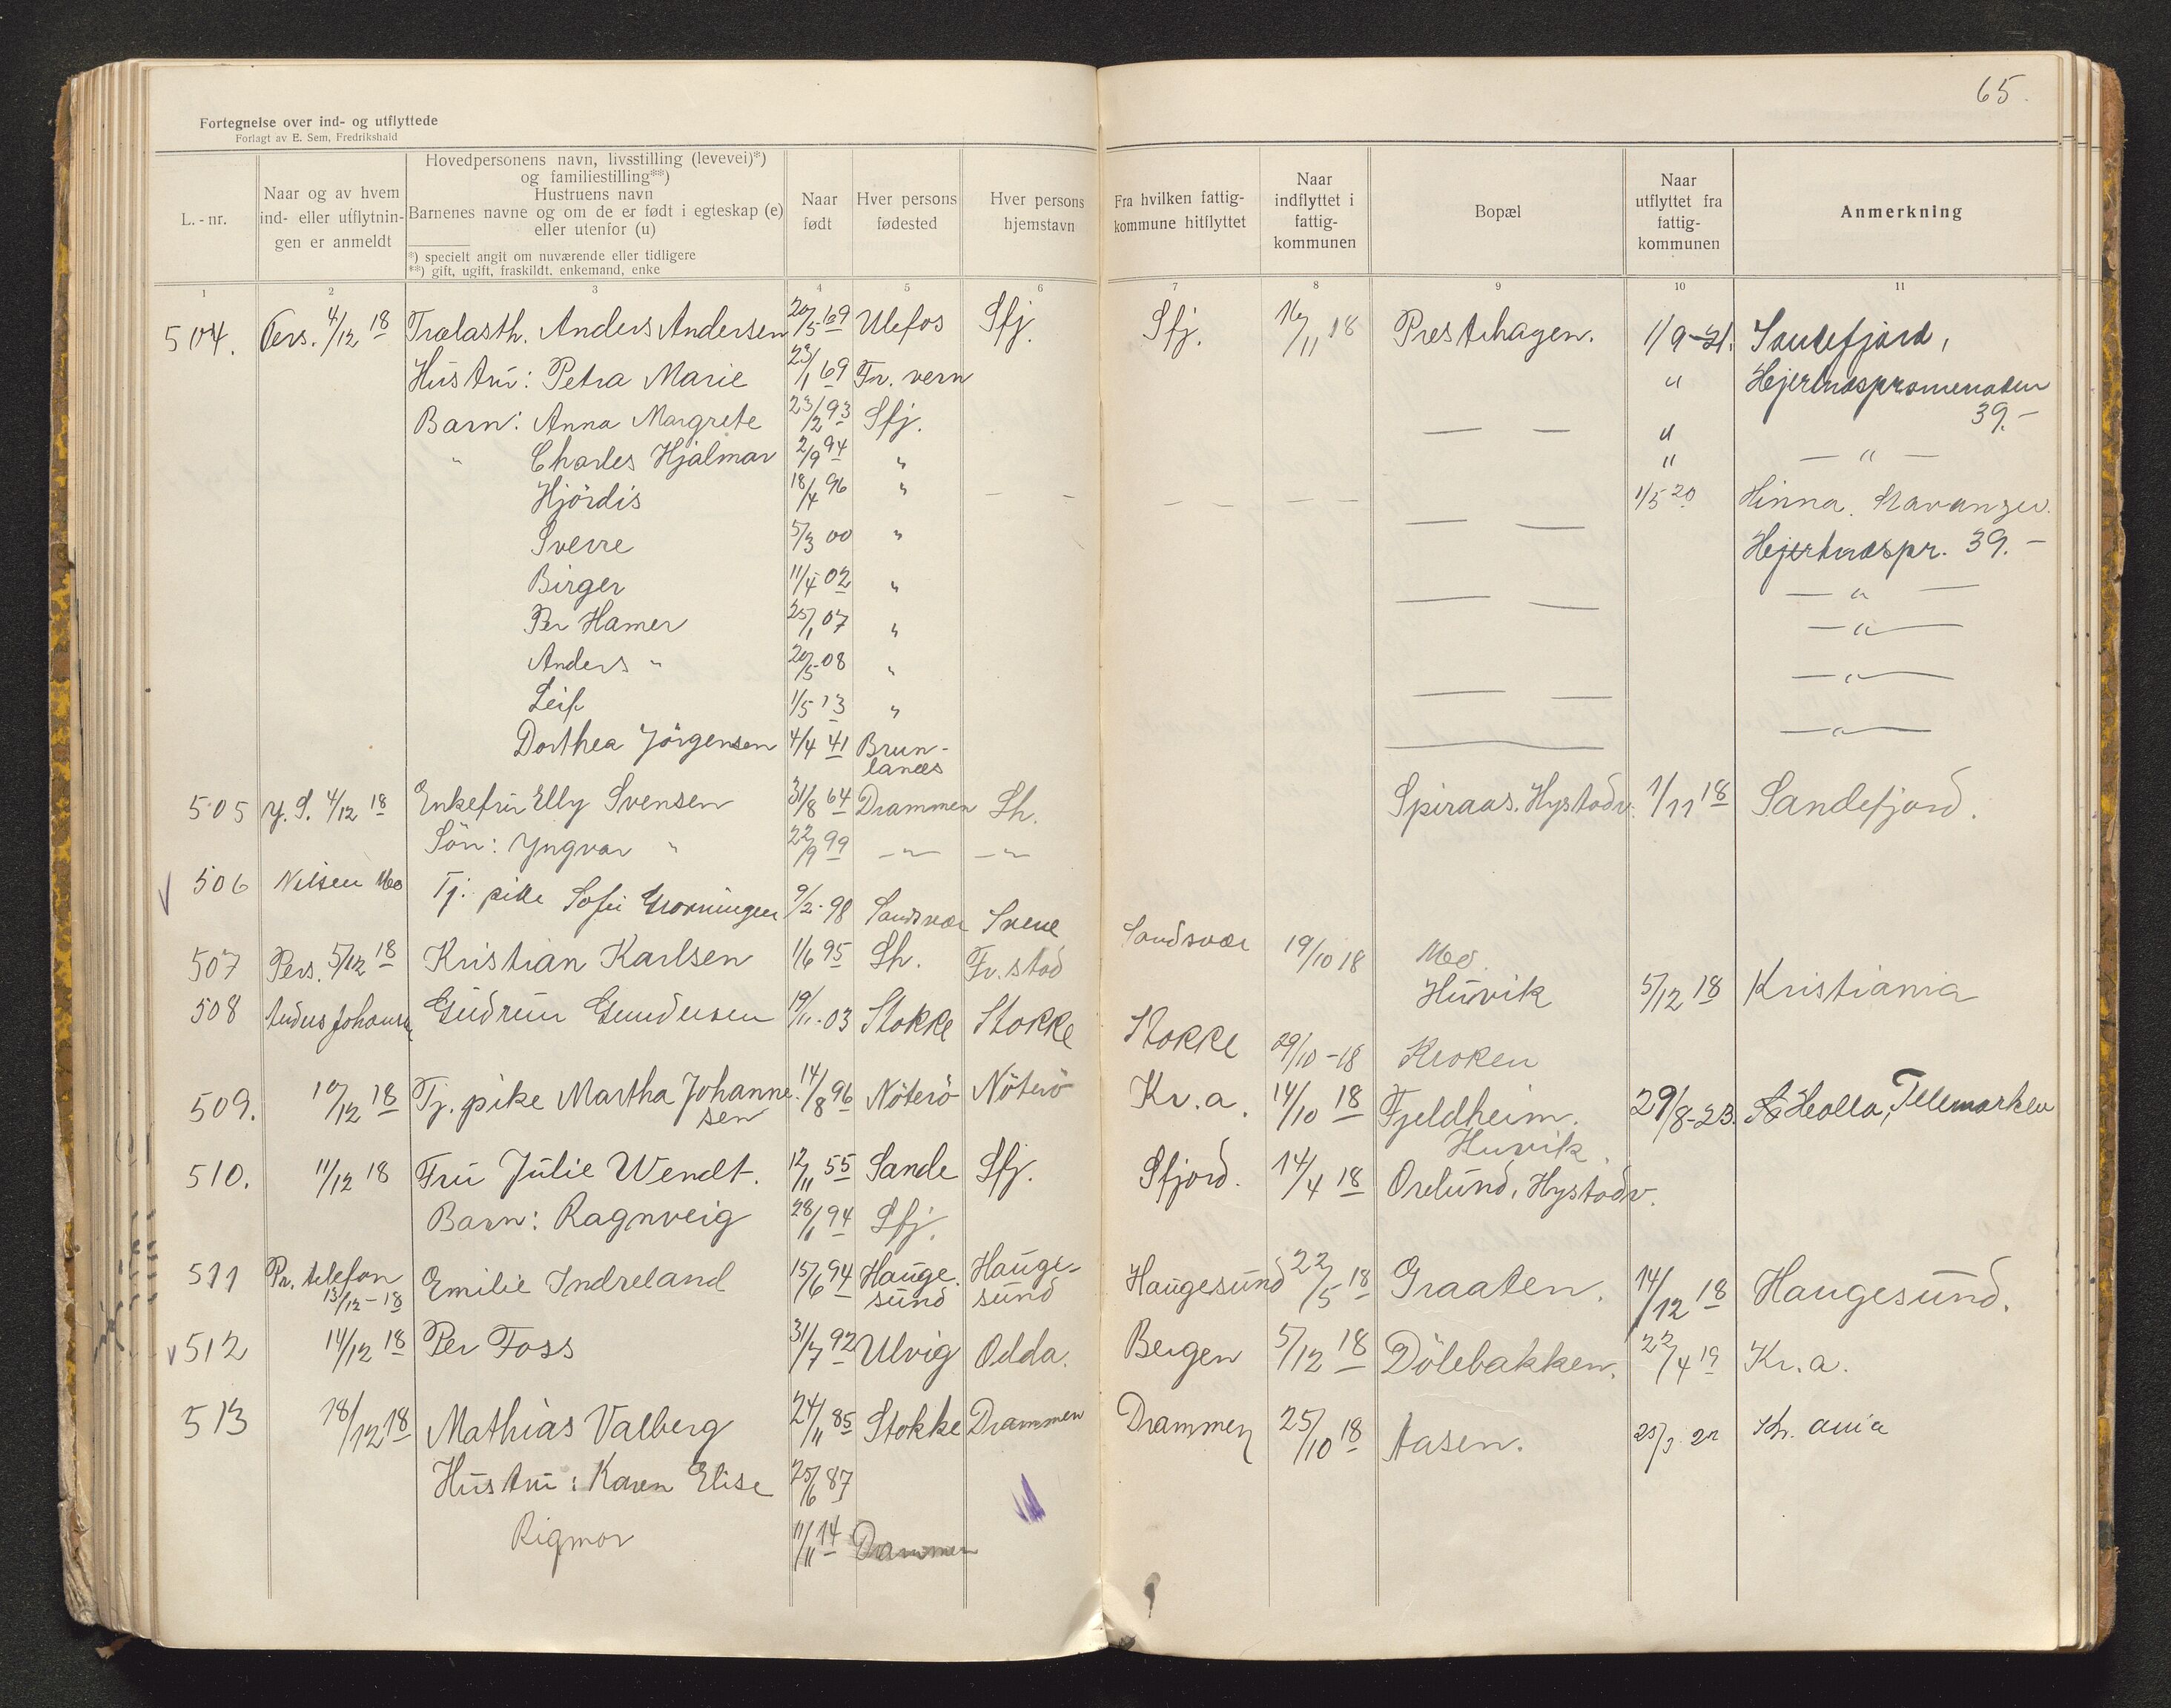 65.
Fortegnelse over ind- og utflyttede
Forlagt av E. Sem, Fredrikshald
L.-nr.
Naar og av hvem ind- eller utflytnin- gen er anmeldt
Hovedpersonens navn, livsstilling (levevei)*)
og familiestilling**)
Hustruens navn
Barnenes navne og om de er født i egteskap (e)
eller utenfor (u)
*) specielt angit om nuværende eller tidligere
**) gift, ugift, fraskildt, enkemand, enke
Naar født
Hver persons fødested
Hver persons hjemstavn
Fra hvilken fattig- kommune hitflyttet
Naar indflyttet i fattig- kommunen
Bopæl
Naar utflyttet fra fattig- kommunen
Anmerkning
1 2 3 4 5 6 7 8 9 10 11
504. Pers. 4/12 18 Trælasth. Anders Andersen 20/5 69 Ulefos Sfj. Sfj. 16/11 18 Prestehagen. 1/9-21. Sandefjord,
Hustru: Petra Marie 23/1 69 Fr. vern " Hjertnæspromenaden
39.-
Barn: Anna Margrete 23/12 93 Sfj. — — "
" Charles Hjalmar 2/9 94 " " — " —
Hjördis 18/4 96 " — — — — — — 1/5 20 Hinna. Stavanger.
Sverre 5/3 00 " — — Hjertnæspr. 39.-
Birger 11/4 02 " — " —
Per Hamer 25/1 07 " — — — " —
Anders " 20/5 08 " — " —
Leif 1/5 13 " — —
Dorthea Jörgensen 4/4 41 Brun- — — " —
lanæs
505 y. S. 4/12 18 Enkefru Elly Svensen 31/8 64 Drammen Sh. Spiraas. Hystadv. 1/11 18 Sandefjord.
Sön: Yngvar " 22/9 99 — " — — " —
506 Nilsen Mo Tj. pike Sofie 9/2-98 Sandsvær Svene Sandsvær 19/10 18 Mo.
507 Pers. 5/12 18 Kristian Karlsen 1/6 95 Sh. Fr. stad Huvik 5/12 18 Kristiania
508 Anders Johansen Gudrun Gundersen 19/11-03 Stokke Stokke Stokke 29/10-18 Kroken
509. 10/12 18 Tj. pike Martha Johanne- 14/8 96 Nöterö Nöterö Kr.a. 14/10 18 Fjeldheim. 29/8-23. Holla, Telemarken
sen Huvik.
510. 11/12 18 Fru Julie Wendt. 12/11 55 Sande Sfj. Sfjord. 14/4 18 Orelund, Hystadv.
Barn: Ragnveig 28/6 94 Sfj.
511 Pr. telefon Emilie Indreland 15/6 94 Hauge- Hauge- Haugesund 22/5 18 Graaten. 14/12 18 Haugesund.
13/12-18 sund sund
512 14/12 18 Per Foss 31/7 92 Ulvig Odda. Bergen 5/12 18 Dölebakken. 22/4 19 Kr.a.
513 18/12 18 Mathias Valberg 24/11 85 Stokke Drammen Drammen 25/10 18 Aasen. Kr. ania
Hustru: Karen Elise 25/6 87
Rigmor 11/11 14 Drammen